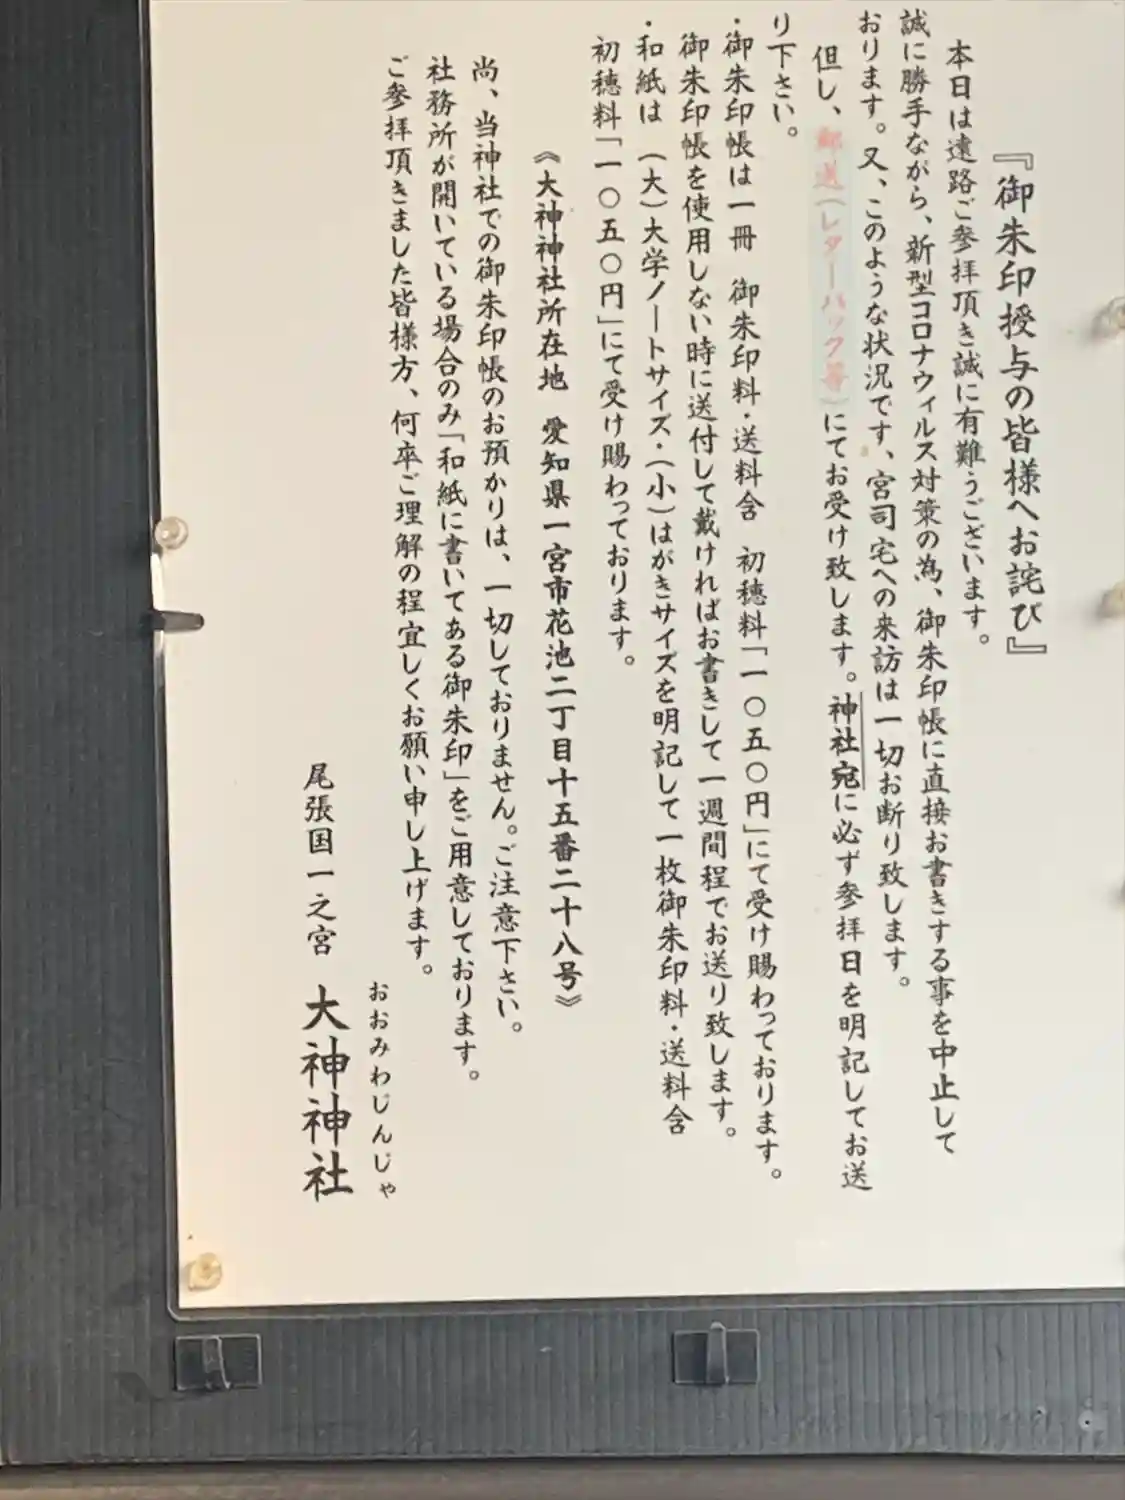 『御朱印授与の皆様へお詫び』
本日は遠路ご参拝頂き誠に有難うございます。
誠に勝手ながら、新型コロナウィルス対策の為、御朱印帳に直接お書きする事を中止して
おります。又、このような状況です、宮司宅への来訪は一切お断り致します。
但し、郵送(レターパック等)にてお受け致します。神社宛に必ず参拝日を明記してお送
り下さい。
・御朱印帳は一冊 御朱印料・送料含 初穂料「一〇五〇円」にて受け賜わっております。
御朱印帳を使用しない時に送付して戴ければお書きして一週間程でお送り致します。
・和紙は (大)大学ノートサイズ・(小)はがきサイズを明記して一枚御朱印料・送料含
初穂料「一〇五〇円」にて受け賜わっております。
《大神神社所在地 愛知県一宮市花池二丁目十五番二十八号》
尚、当神社での御朱印帳のお預かりは、一切しておりません。ご注意下さい。
社務所が開いている場合のみ「和紙に書いてある御朱印」をご用意しております。
ご参拝頂きました皆様方、何卒ご理解の程宜しくお願い申し上げます。
おおみわじんじゃ
尾張国一之宮 大神神社